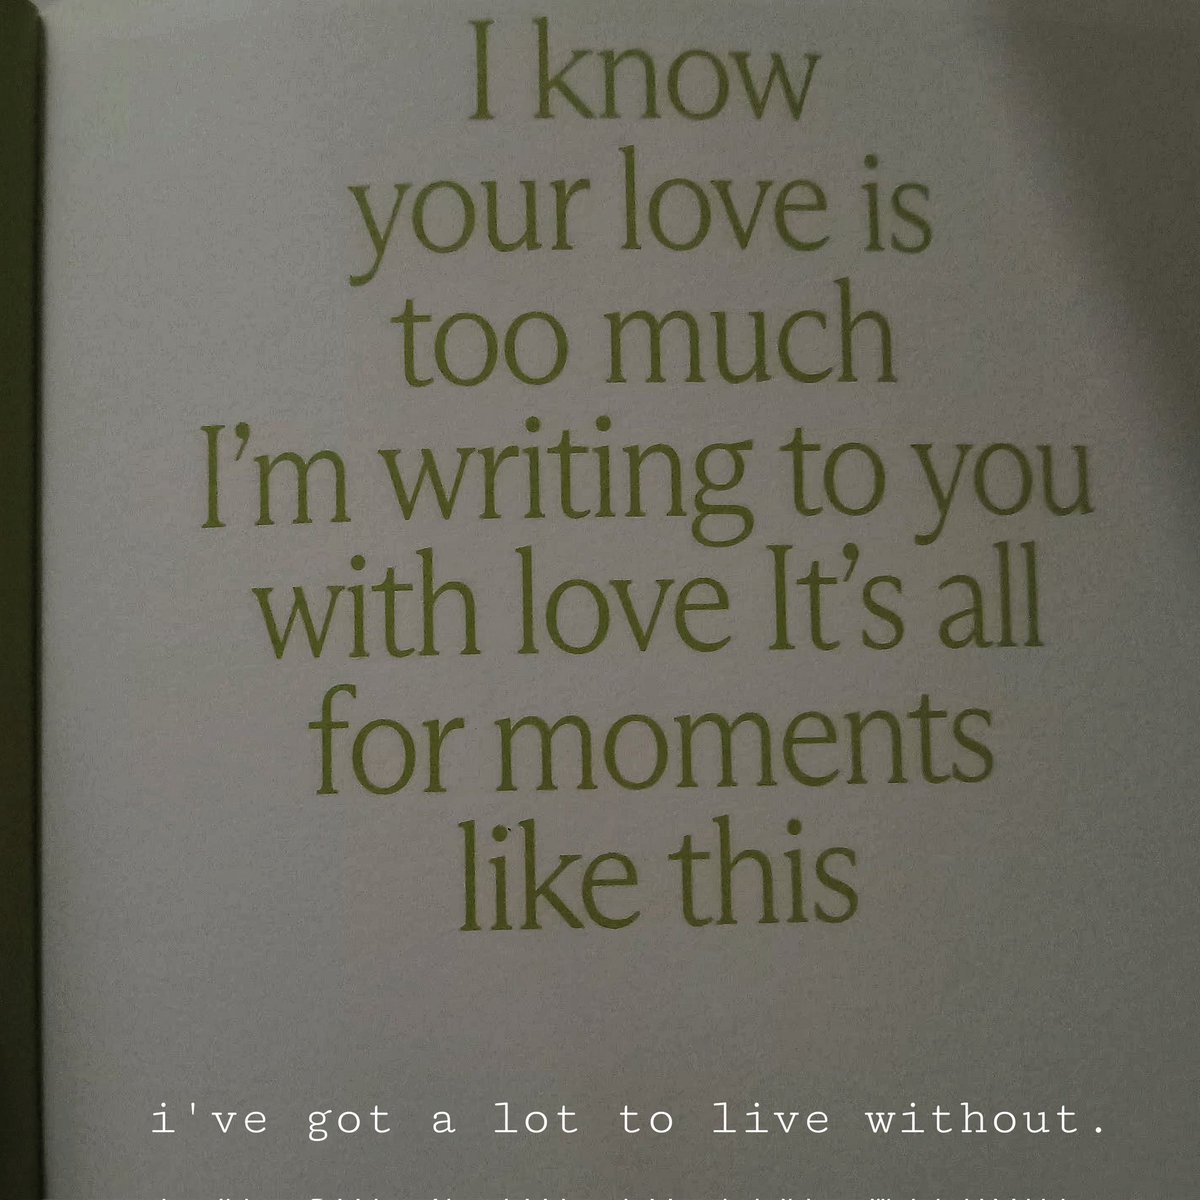 I know
your love is
too much
I'm writing to you
with love It's all
for moments
like this
i've got a lot to live without.